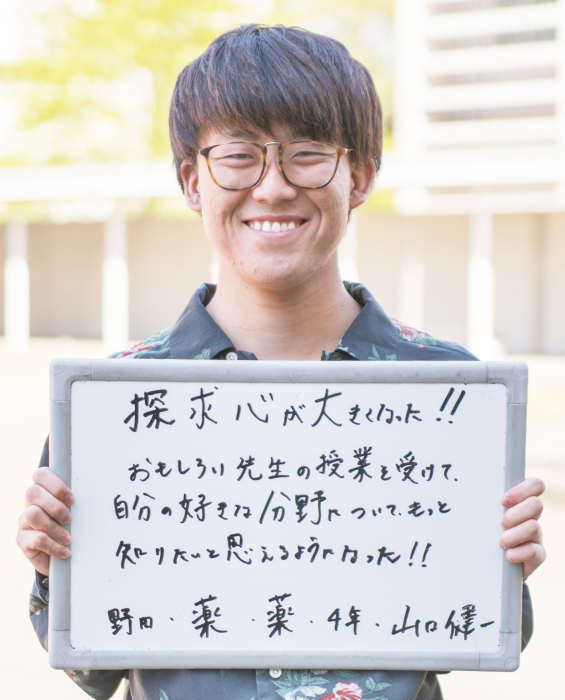 探求心が大きくなった!!
おもしろい先生の授業を受けて、
自分の好きな分野について、もっと
知りたいと思えるようになった!!
野田・薬・薬・4年・山口健一